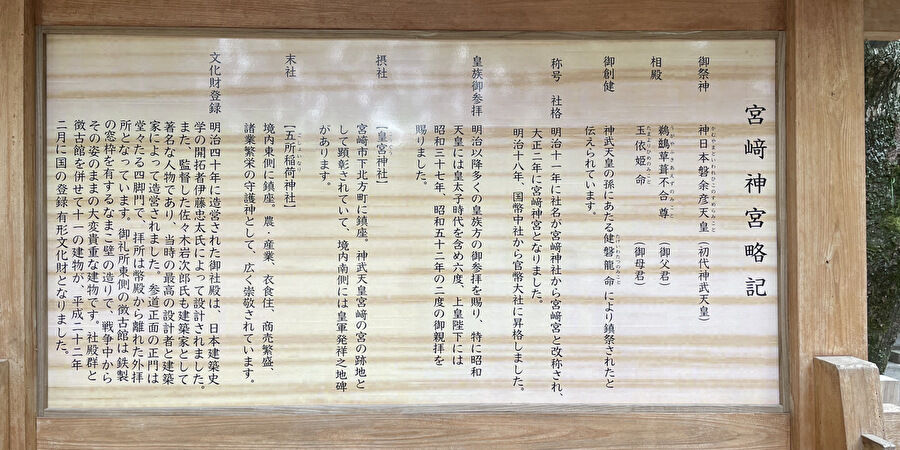 宮﨑神宮略記
御祭神　神日本磐余彦天皇（初代神武天皇）
かむやまといわれひこのすめらみこと
相殿　鵜鶿草葺不合尊（御父君）
うがやふきあえずのみこと
玉依姫命（御母君）
たまよりひめのみこと
御創健　神武天皇の孫にあたる健磐龍命により鎮祭されたと
たけいわたつのみこと
伝えられています。
称号　社格　明治十一年に社名が宮﨑神社から宮﨑宮と改称され、
大正二年に宮﨑神宮となりました。
明治十八年、国幣中社から官幣大社に昇格しました。
皇族御参拝　明治以降多くの皇族方の御参拝を賜り、特に昭和
天皇には皇太子時代を含め六度、上皇陛下には
昭和三十七年、昭和五十二年の二度の御親拝を
賜りました。
摂社　【皇宮神社】
こぐや
宮﨑市下北方町に鎮座。神武天皇宮﨑の宮の跡地と
して顕彰されていて、境内南側には皇軍発祥之地碑
があります。
末社　【五所稲荷神社】
ごしょいなり
境内東側に鎮座。農・産業、衣食住、商売繁盛、
諸業繁栄の守護神として、広く崇敬されています。
文化財登録　明治四十年に造営された御社殿は、日本建築史
学の開拓者伊藤忠太氏によって設計されました。
また、監督した佐々木岩次郎氏も建築家として
著名な人物であり、当時の最高の設計者と建築
家によって造営されました。参道正面の正門は
堂々たる四脚門で、拝所は幣殿から離れた外拝
所となっています。御社所東側の徴古館は鉄製
の窓枠を有するなまこ壁の造りで、戦争中から
その姿のままの大変貴重な建物です。社殿群と
徴古館を併せて十一の建物が、平成二十二年
二月に国の登録有形文化財となりました。